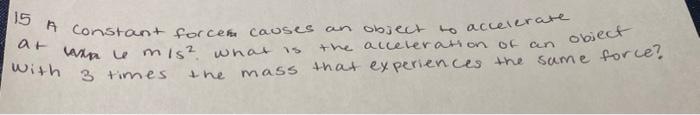 15 A constant force causes an object to accelerate
at m/s². what is the acceleration of an object
with 3 times the mass that experiences the same force?